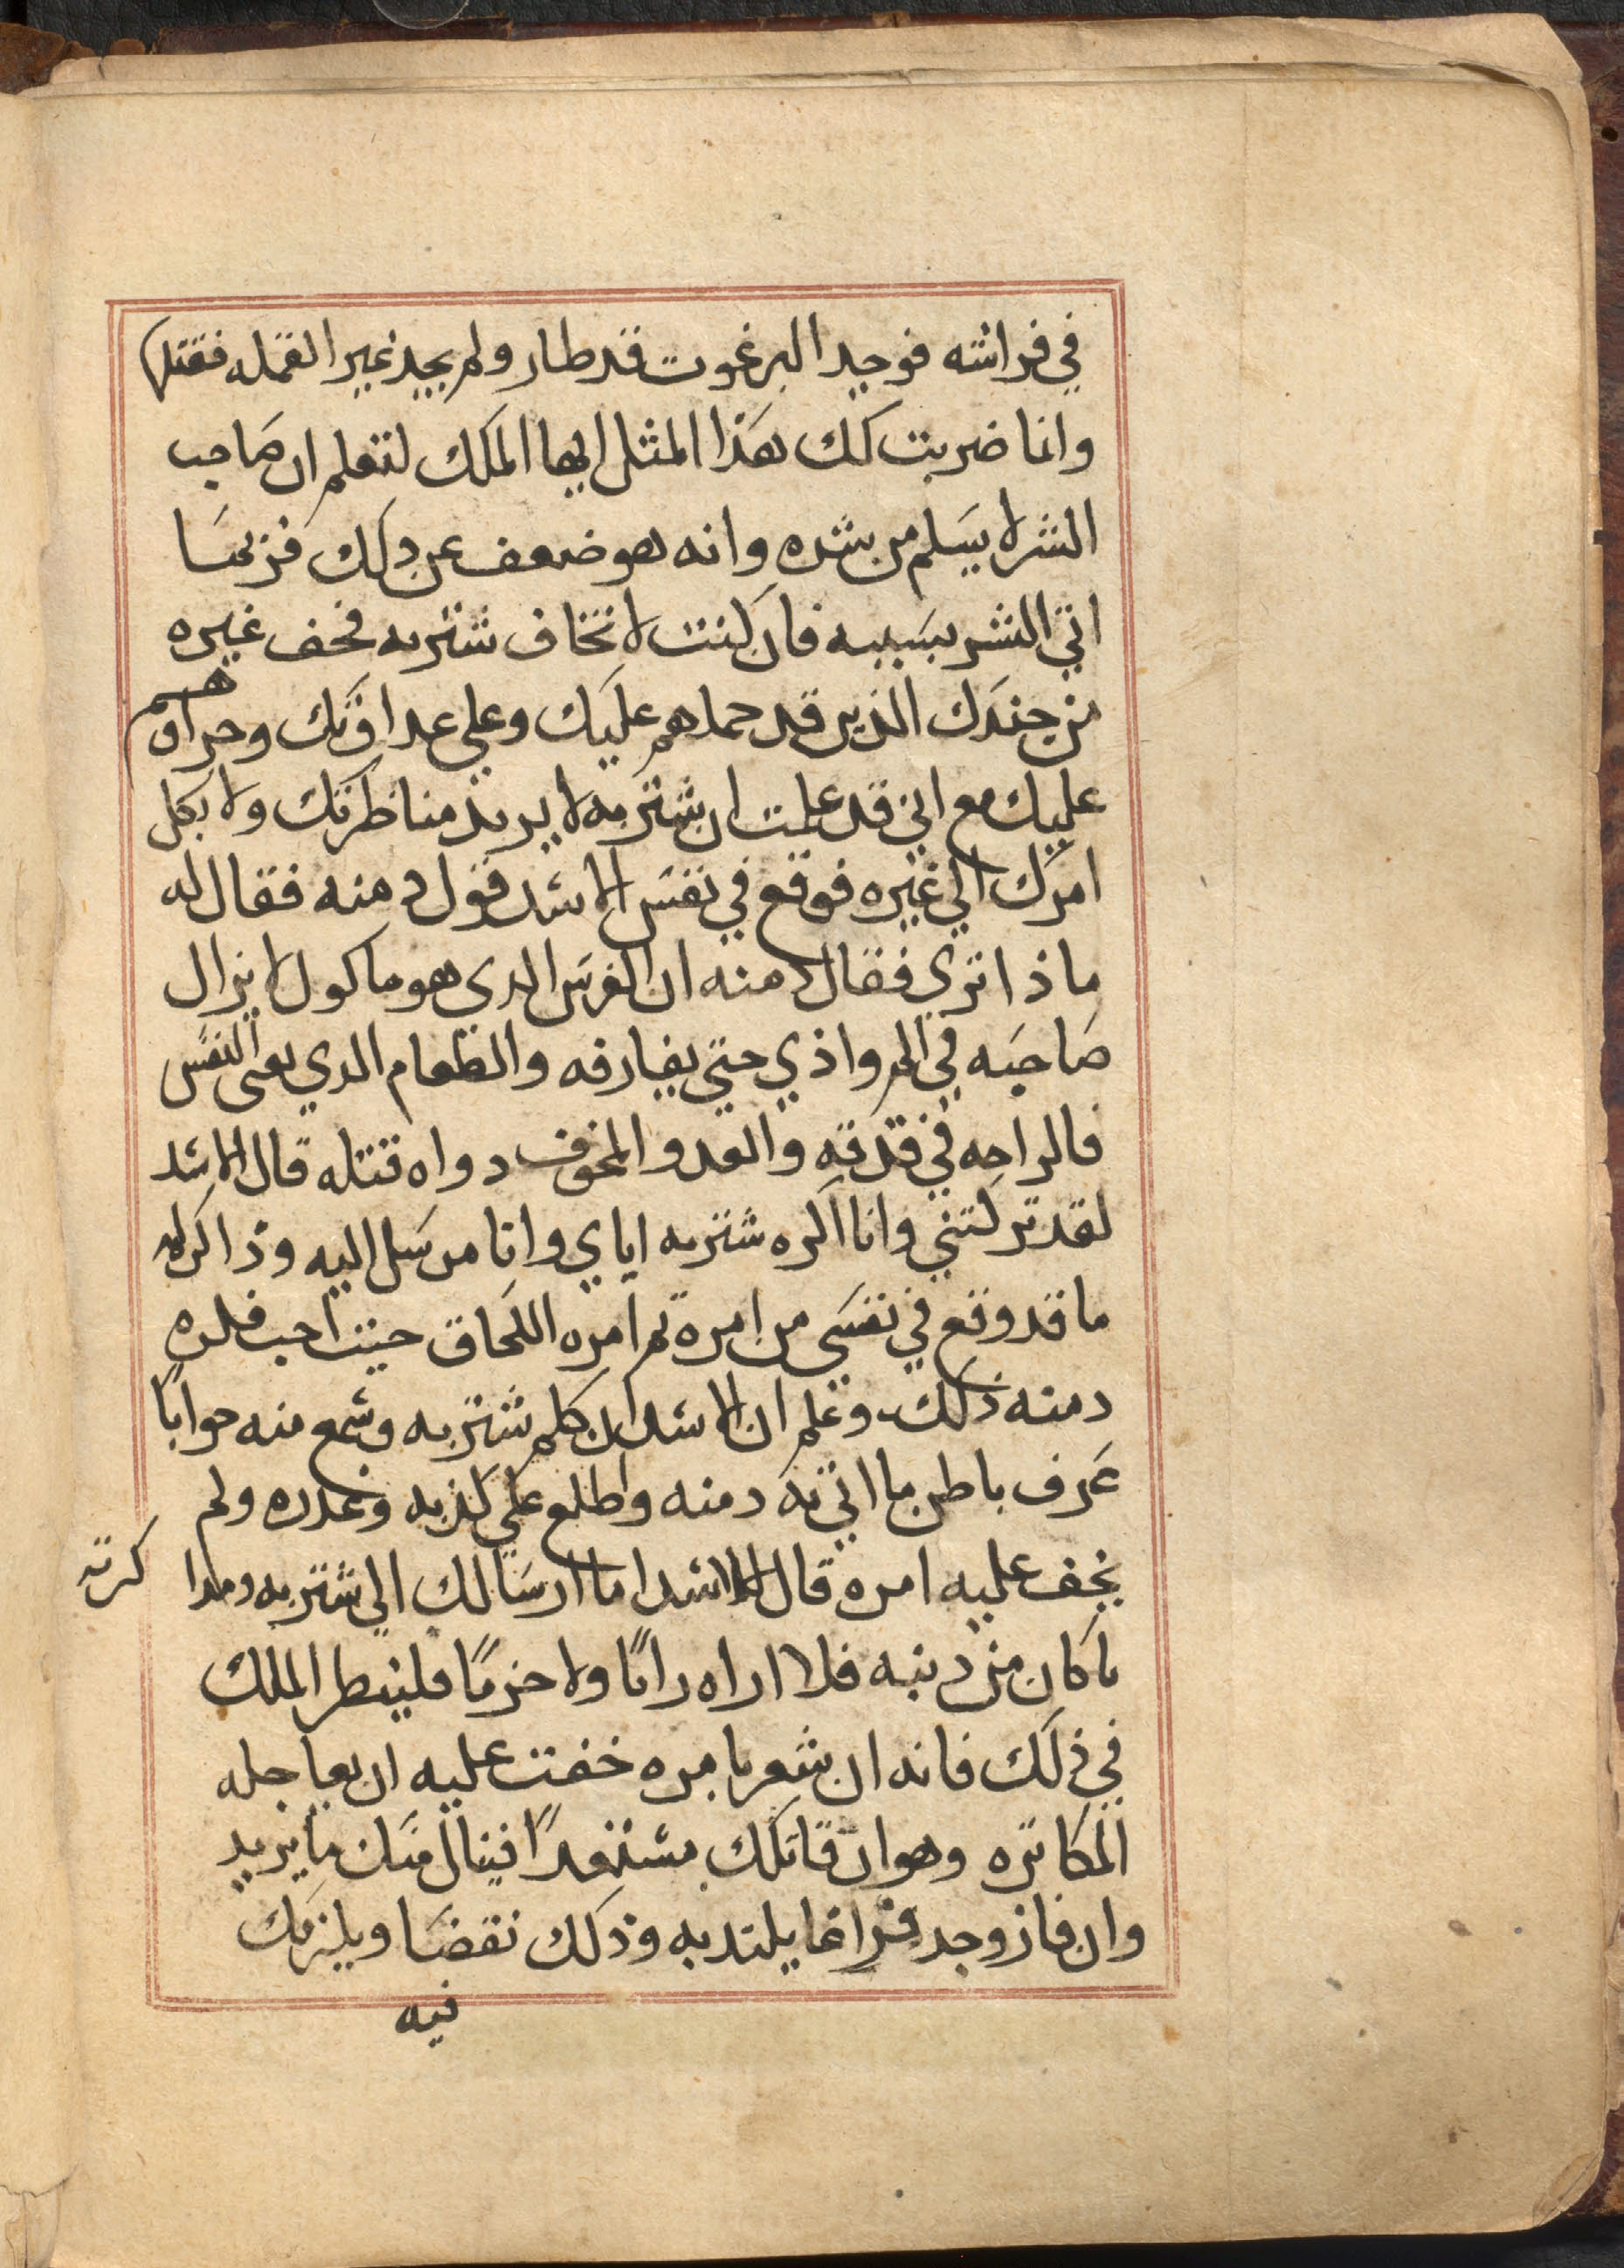 في فراشه فوجد البرغوت قد طار ولم يجد غير القمله فقتلها
وانا ضربت لك هذا المثل ايها الملك لتعلم ان صاحب
الشر لا يسلم من شره وانه هو ضعف عن دلك فربما
اتي الشر بسببه فان كنت لا تخاف شتربه فخف غيره
من جندك الذين قد حملهم عليك وعلي عداوتك وجراهم
عليك مع اني قد علمت ان شتربه لا يريد مناظرتك ولا يكل
امرك الي غيره فوقع في نفس الاسد قول دمنه فقال له
ماذا تري فقال دمنه ان الضرس الدي هو ماكول لا يزال
صاحبه في الم واذي حتي يفارقه والطعام الدي يعي النفس
فالراحه في قذفه والعدو المخوف دواه قتله قال الاسد
لقد تركتني وانا اكره شتربه اياي وانا مرسل اليه وذاكر له
ما قد وقع في نفسي من امره ثم امره اللحاق حيث احب فكره
دمنه ذلك وعلم ان الاسد ان كلم شتربه وسمع منه جوابا
عرف باطن ما اتي به دمنه واطلع علي كذبه وغدره ولم
يخف عليه امره قال للاسد اما ارسالك الي شتربه
ما كان من دنبه فلا اراه رايا ولا حزما فلينظر الملك
في ذلك فانه ان شعر بامره خفت عليه ان يعاجله
المكاثره وهو ان قاتلك مستعدا فينال منك ما يريد
وان فاز وجد فراغا يلتد به وذلك نقضا ويلزمك
فيه